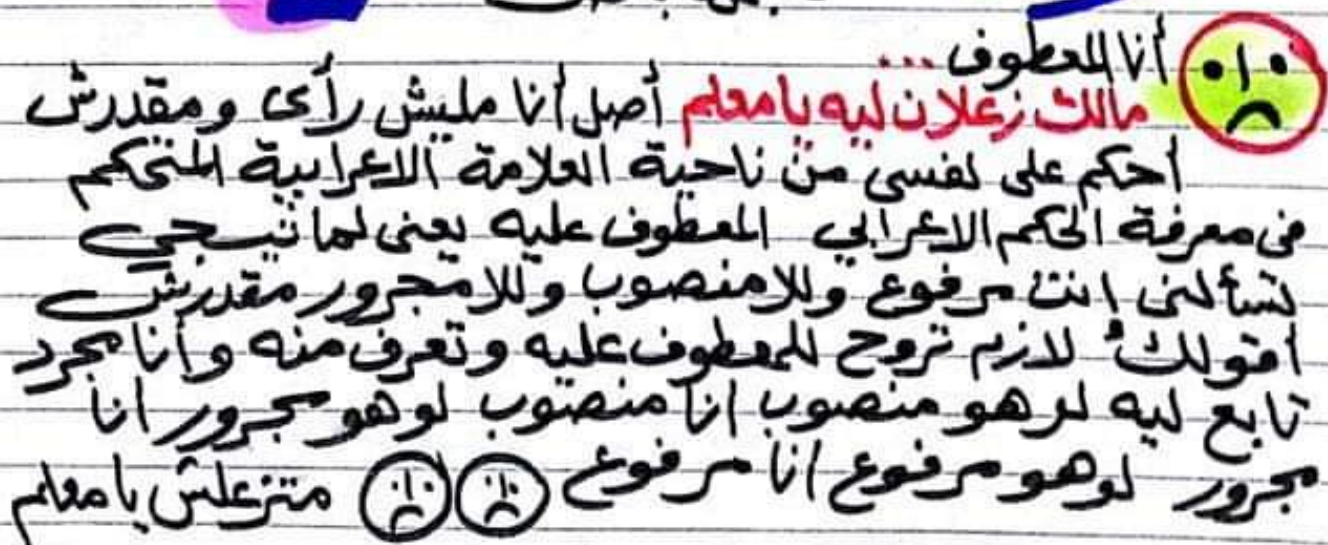 أنا المعطوف...
مالك زعلان ليه يا معلم أصل أنا مليش رأى ومقدرش
أحكم على نفسى من ناحية العلامة الاعرابية المتحكم
فى معرفة الحكم الاعرابي المعطوف عليه يعنى لما تيجى
تسألنى انت مرفوع وللا منصوب وللا مجرور مقدرش
اقولك لازم تروح للمعطوف عليه وتعرف منه وأنا مجرد
تابع ليه لو هو منصوب انا منصوب لو هو مجرور انا
مجرور لو هو مرفوع انا مرفوع متزعلش يا معلم